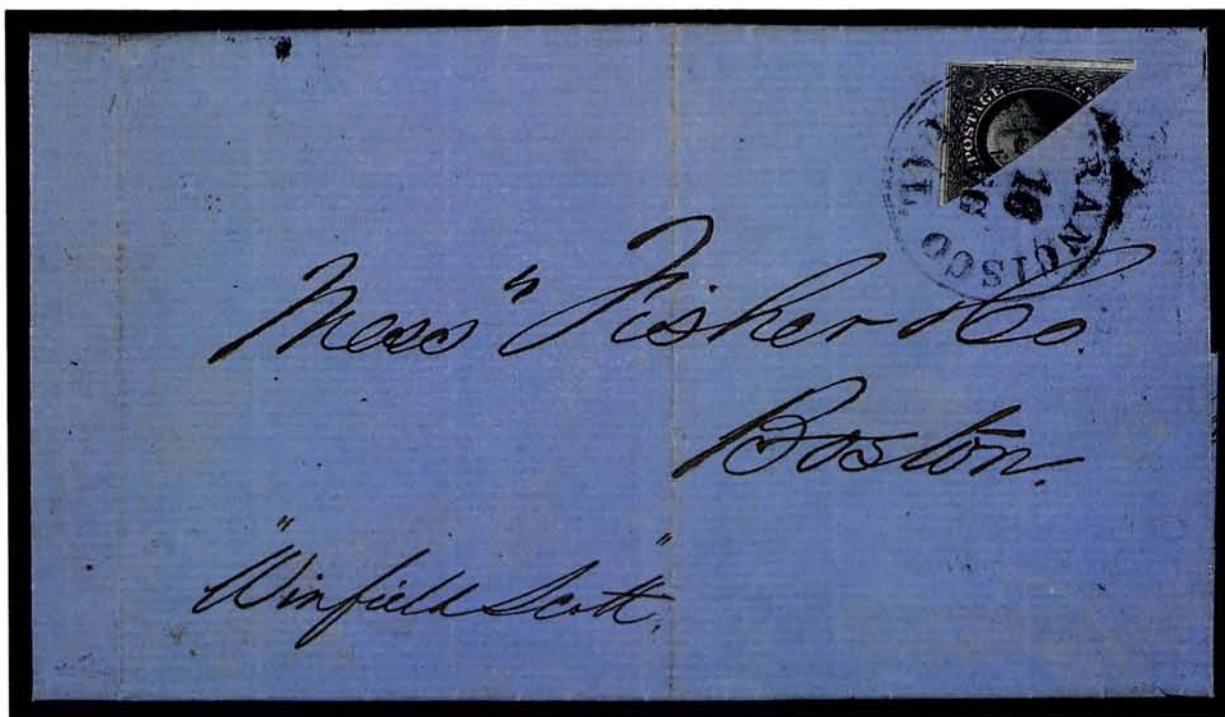 POSTAGE
FRANCISCO
16
Mess" Fisher & Co.
Boston.
"Winfield Scott".